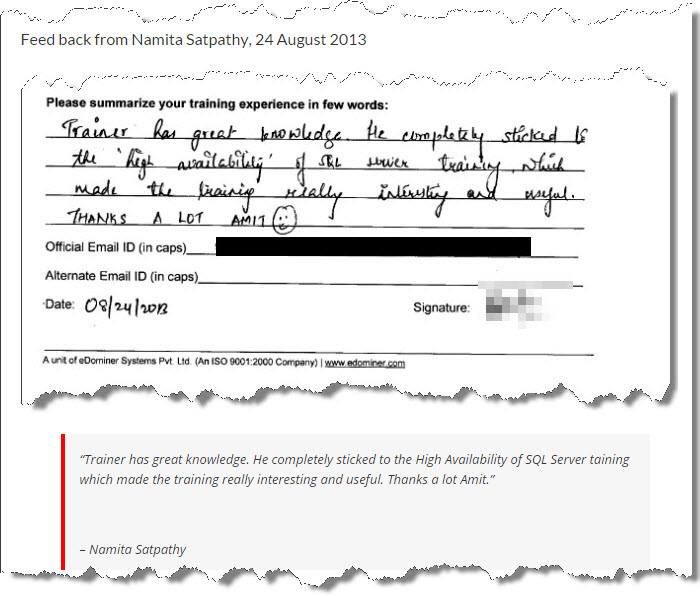 Feed back from Namita Satpathy, 24 August 2013
Please summarize your training experience in few words:
Trainer has great knowledge. He completely sticked to
the 'high availability' of SQL server training, which
made the training really interesting and useful.
THANKS A LOT AMIT
Official Email ID (in caps)
Alternate Email ID (in caps)
Date: 08/24/2013 Signature:
A unit of eDominer Systems Pvt. Ltd. (An ISO 9001:2000 Company) | www.edominer.com
“Trainer has great knowledge. He completely sticked to the High Availability of SQL Server taining
which made the training really interesting and useful. Thanks a lot Amit.”
– Namita Satpathy